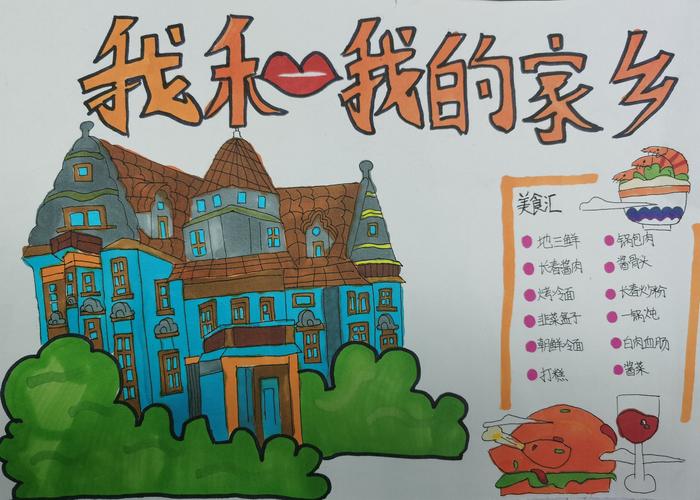 我和我的家乡
美食汇
地三鲜
长春酱肉
烤冷面
韭菜盒子
朝鲜冷面
打糕
锅包肉
酱骨头
长春炒粉
一锅炖
白肉血肠
酱菜